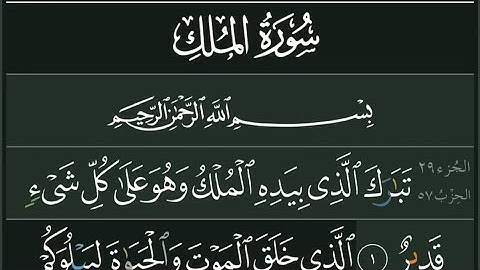 سُورَةُ المُلكِ
بِسْمِ اللَّهِ الرَّحْمَٰنِ الرَّحِيمِ
الجُزء ٢٩
الحِزْب ٥٧
تَبَٰرَكَ ٱلَّذِي بِيَدِهِ ٱلْمُلْكُ وَهُوَ عَلَىٰ كُلِّ شَيْءٍ
قَدِيرٌ ١ ٱلَّذِي خَلَقَ ٱلْمَوْتَ وَٱلْحَيَوٰةَ لِيَبْلُوَكُمْ